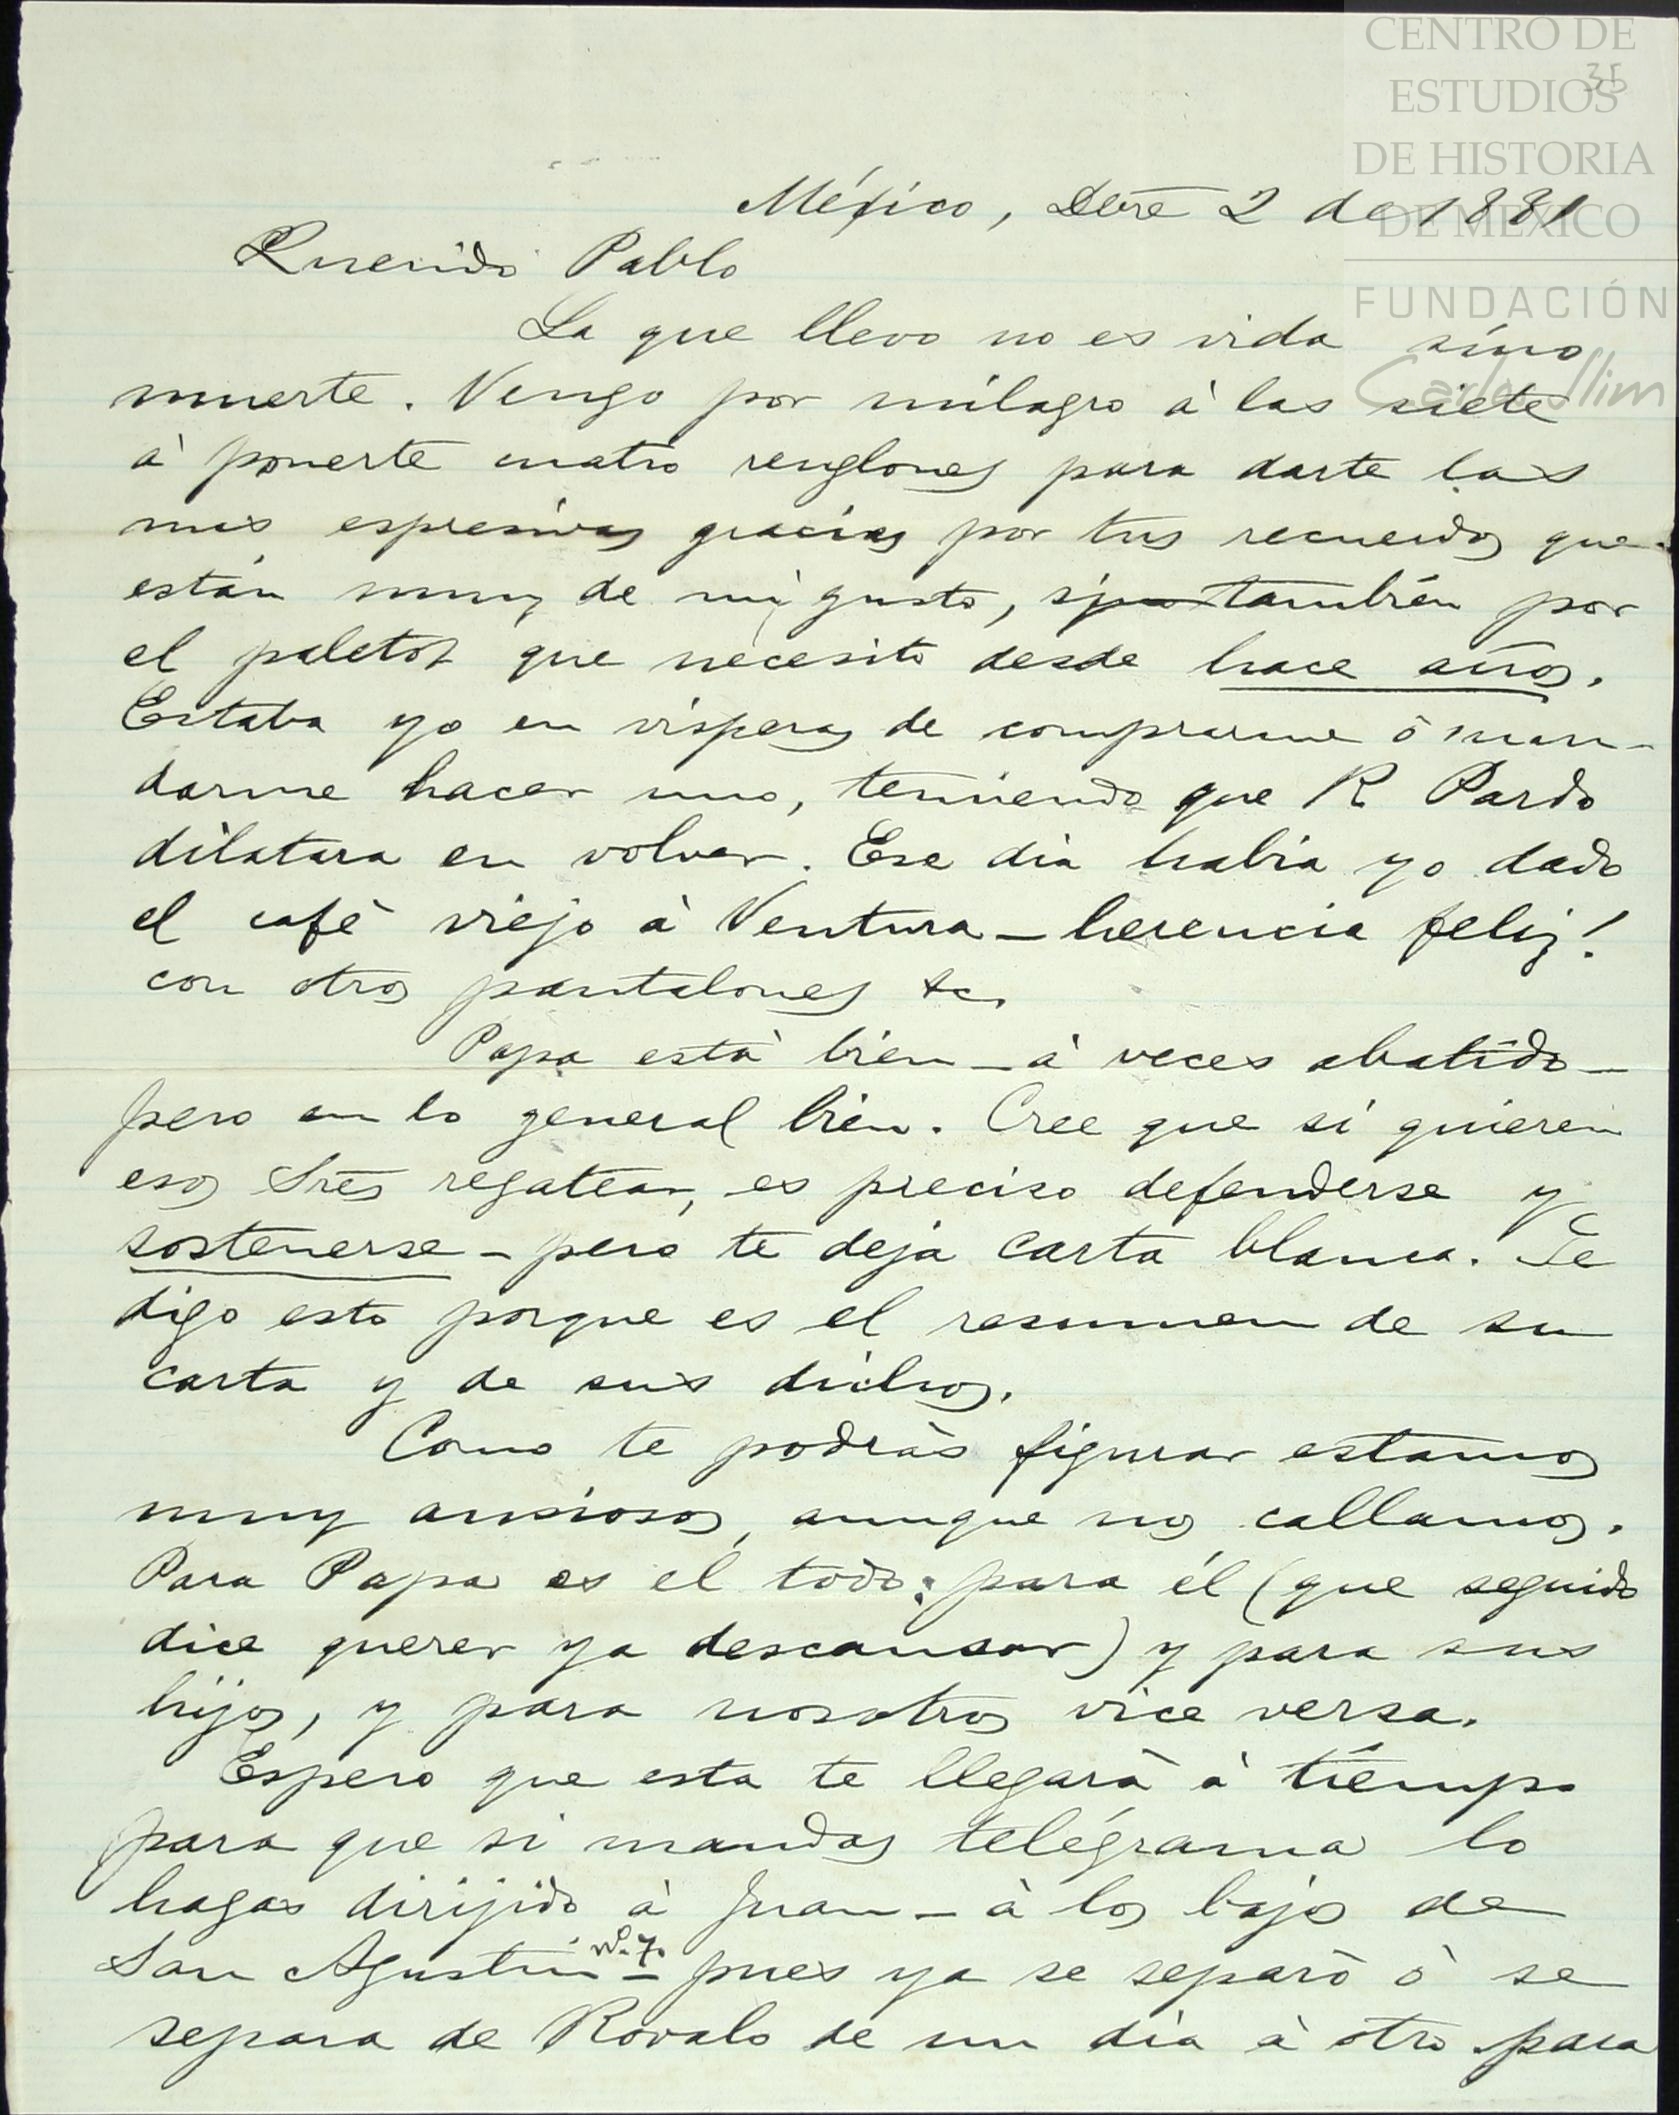 CENTRO DE
ESTUDIOS
DE HISTORIA
DE MÉXICO
FUNDACIÓN
Carlos Slim
35
México, Dbre 2 de 1881
Querido Pablo
La que llevo no es vida sino
muerte. Vengo por milagro à las siete
à ponerte cuatro renglones para darte las
mas espresivas gracias por tus recuerdos que
están muy de mi gusto, también por
el paletot que necesito desde hace años.
Estaba yo en visperas de comprarme ó man-
darme hacer uno, temiendo que R Pardo
dilatara en volver. Ese dia habia yo dado
el café viejo à Ventura - herencia feliz!
con otros pantalones &c.
Papa está bien - à veces abatido -
pero en lo general bien. Cree que si quieren
esos Sres regatear, es preciso defenderse y
sostenerse - pero te deja carta blanca. Te
digo esto porque es el resumen de su
carta y de sus dichos.
Como te podràs figurar estamos
muy ansiosos, aunque nos callamos.
Para Papa es el todo: para él (que seguido
dice querer ya descansar) y para sus
hijos, y para nosotros vice versa.
Espero que esta te llegarà à tiempo
para que si mandas telégrama lo
hagas dirijido à Juan - à los bajos de
San Agustin nº 7. - pues ya se separò ò se
separa de Rovalo de un dia à otro para